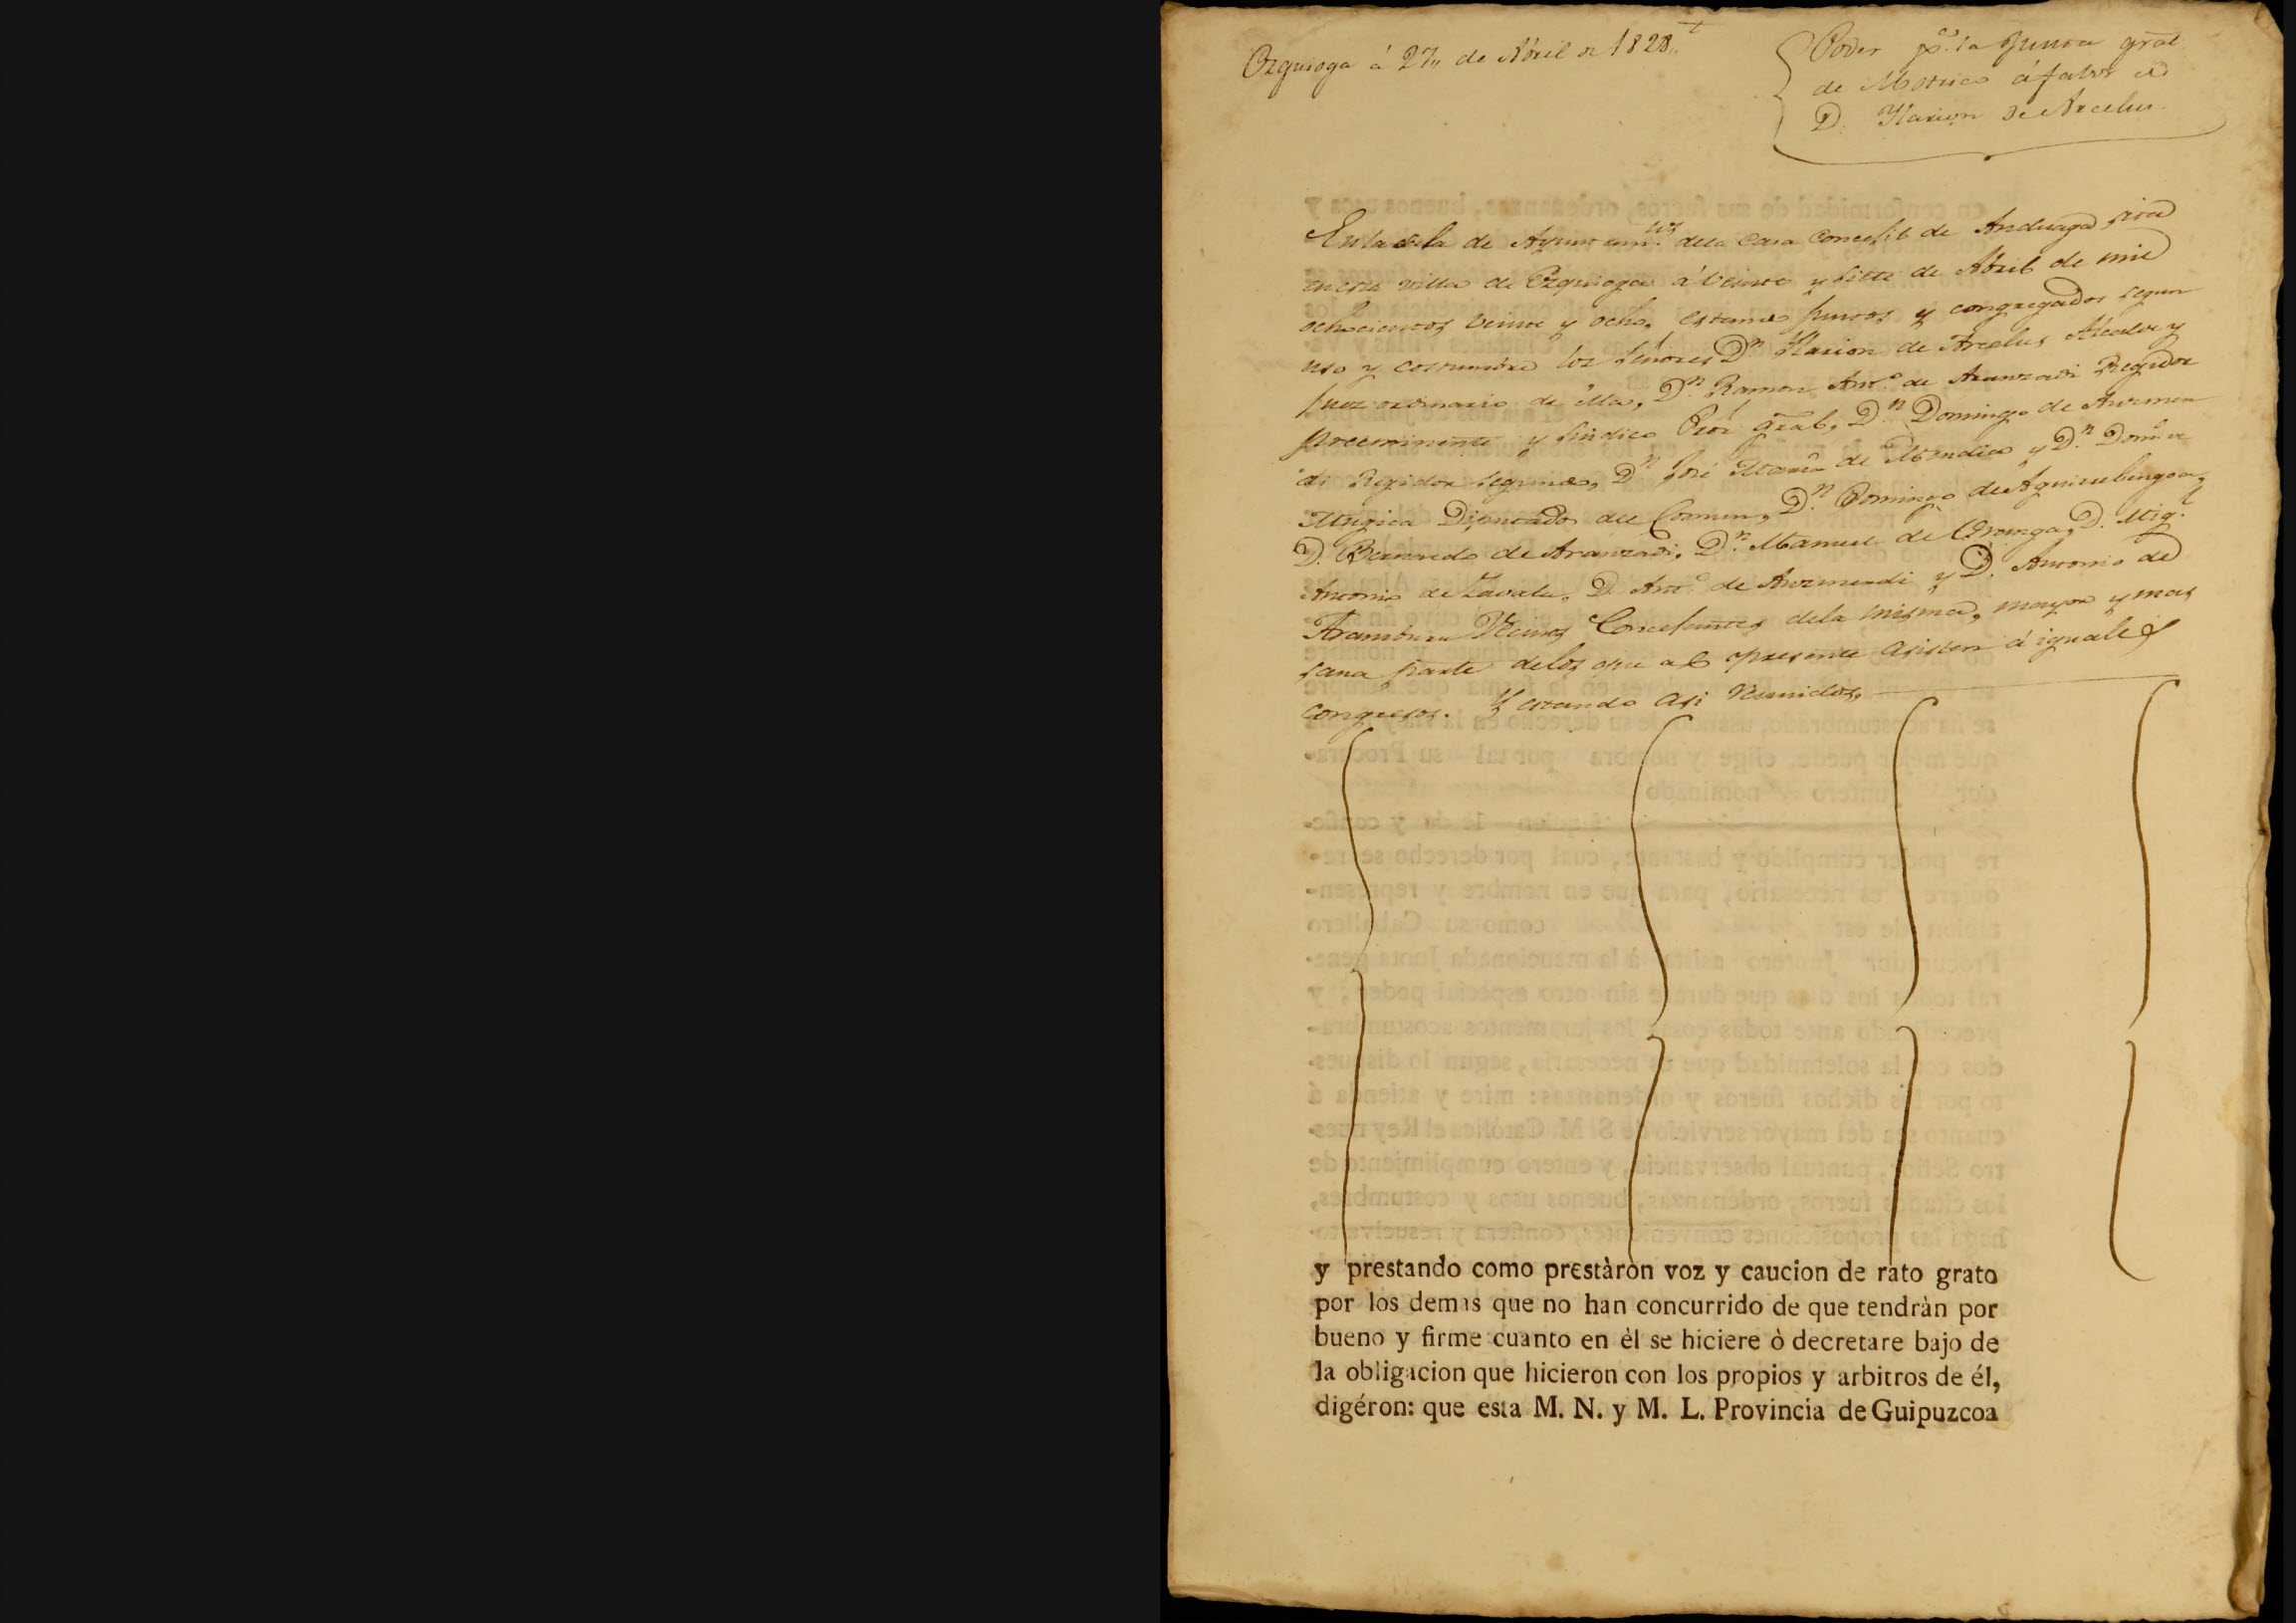 Ezquioga á 27,, de Abril de 1828,,
Poder pª. la Junta gral
de Motrico á fabor de
D. Ylarion de Arcelus.
En la sala de Ayuntam.tos dela Casa Concejil de Anduaga, sita
en esta villa de Ezquioga á veinte y siete de Abril de mil
ochocientos veinte y ocho, estando juntos y congregados segun
uso y costumbre los Señores D.n Ylarion de Arcelus Alcalde y
Juez ordinario de ella, D.n Ramon Ant.o de Aranzadi Regidor
preeminente y sindico Pror gral, D.n Domingo de Auzmen
di Regidor segundo, D.n José Maria de Mendico y D.n Dom.o de
Mugica Diputados del Comun, D.n Domingo de Aguirrebengoa,
D. Bernardo de Aranzadi, D.n Manuel de Oraega, D. Mig.l
Antonio de Zavala, D. Ant.o de Auzmendi y D. Antonio de
Aramburu Vecinos Concejantes dela misma, mayor y mas
sana parte delos que al presente asisten á iguales
congresos. Y estando asi reunidos,
y prestando como prestàron voz y caucion de rato grato
por los demas que no han concurrido de que tendràn por
bueno y firme cuanto en èl se hiciere ò decretare bajo de
la obligacion que hicieron con los propios y arbitros de él,
digéron: que esta M. N. y M. L. Provincia de Guipuzcoa